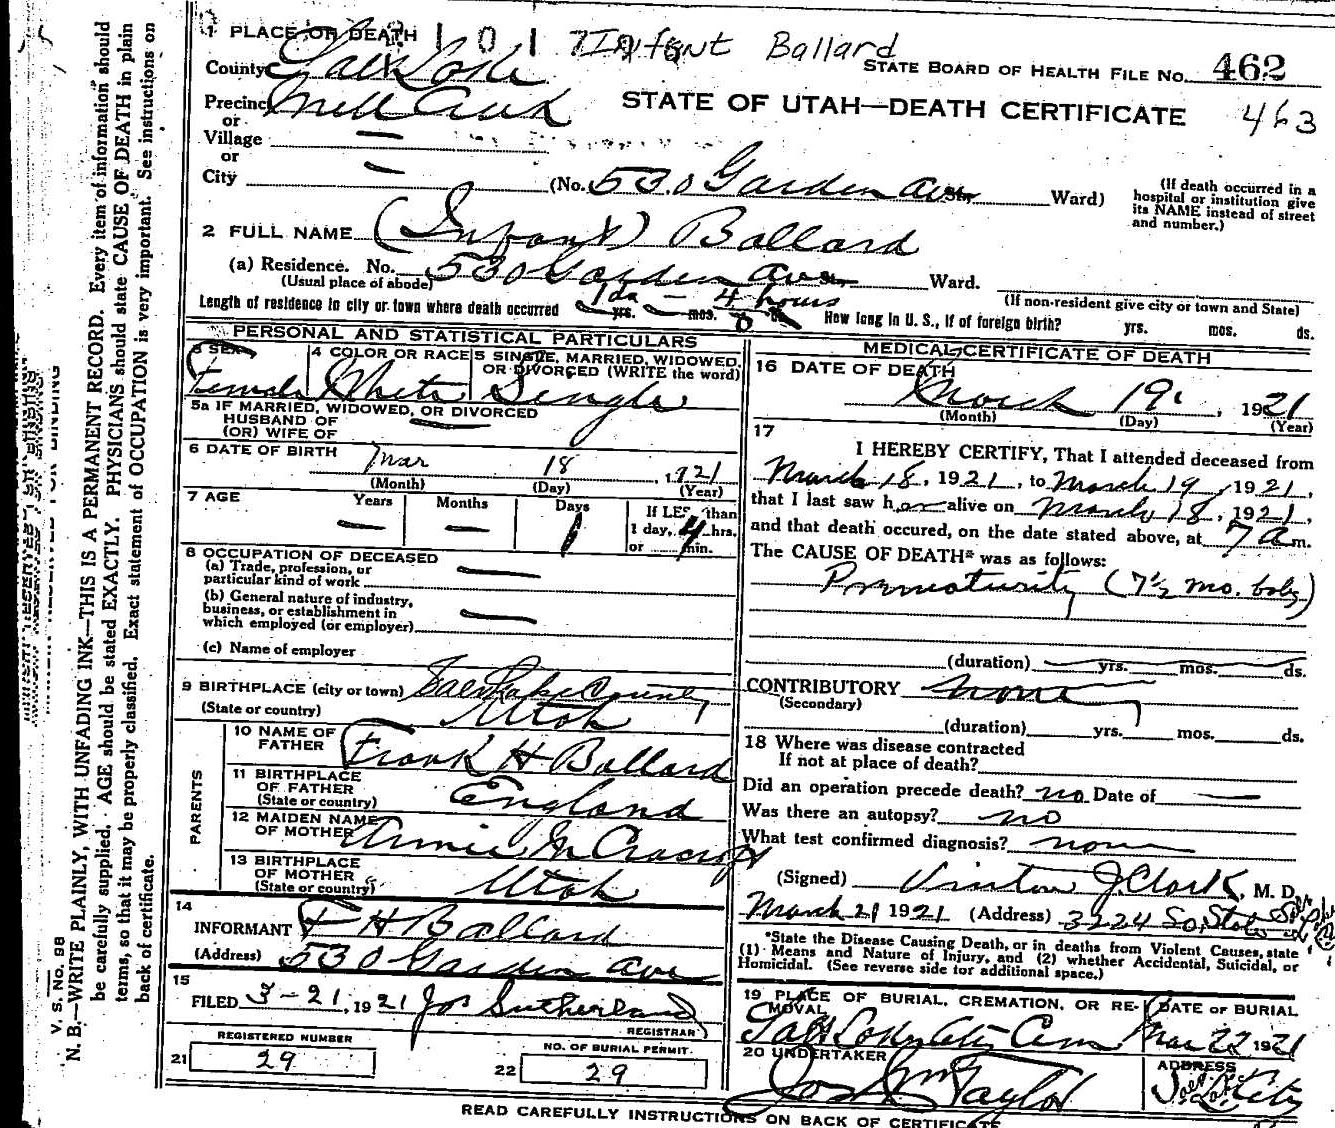 1 PLACE OF DEATH 1 0 1 7 Infant Ballard
STATE BOARD OF HEALTH FILE NO. 462
County Salt Lake
463
STATE OF UTAH—DEATH CERTIFICATE
Precinct Mill Creek
or
Village —
or
City — (No. 530 Garden Ave St., Ward)
(If death occurred in a hospital or institution give its NAME instead of street and number.)
2 FULL NAME (Infant) Ballard
(a) Residence. No. 530 Garden Ave St. Ward.
(Usual place of abode) (If non-resident give city or town and State)
Length of residence in city or town where death occurred 1 da yrs. — mos. 4 hours How long in U. S., if of foreign birth? yrs. mos. ds.
PERSONAL AND STATISTICAL PARTICULARS
3 SEX Female
4 COLOR OR RACE White
5 SINGLE, MARRIED, WIDOWED, OR DIVORCED (WRITE the word) Single
5a IF MARRIED, WIDOWED, OR DIVORCED
HUSBAND OF
(OR) WIFE OF —
6 DATE OF BIRTH Mar 18, 1921
(Month) (Day) (Year)
7 AGE Years — Months — Days 1 If LESS than
1 day, 4 hrs.
or min.
8 OCCUPATION OF DECEASED
(a) Trade, profession, or
particular kind of work —
(b) General nature of industry,
business, or establishment in
which employed (or employer) —
(c) Name of employer
9 BIRTHPLACE (city or town) Salt Lake County
(State or country) Utah
PARENTS
10 NAME OF FATHER Frank H Ballard
11 BIRTHPLACE OF FATHER (State or country) England
12 MAIDEN NAME OF MOTHER Annie M Cracroft
13 BIRTHPLACE OF MOTHER (State or country) Utah
14
INFORMANT F H Ballard
(Address) 530 Garden Ave
15
FILED 3-21, 1921 Jos Sutherland
REGISTRAR
21 REGISTERED NUMBER 29
22 NO. OF BURIAL PERMIT 29
MEDICAL CERTIFICATE OF DEATH
16 DATE OF DEATH
March 19, 1921
(Month) (Day) (Year)
17
I HEREBY CERTIFY, That I attended deceased from
March 18, 1921, to March 19, 1921,
that I last saw her alive on March 18, 1921,
and that death occured, on the date stated above, at 7 a m.
The CAUSE OF DEATH* was as follows:
Prematurity (7½ mo. baby)
(duration) yrs. mos. ds.
CONTRIBUTORY none
(Secondary)
(duration) yrs. mos. ds.
18 Where was disease contracted
If not at place of death?
Did an operation precede death? no Date of —
Was there an autopsy? no
What test confirmed diagnosis? none
(Signed) J. Clark, M. D.
March 21 1921 (Address) 3224 So. State St
*State the Disease Causing Death, or in deaths from Violent Causes, state
(1) Means and Nature of Injury, and (2) whether Accidental, Suicidal, or
Homicidal. (See reverse side for additional space.)
19 PLACE OF BURIAL, CREMATION, OR REMOVAL
Salt Lake City Cem
DATE OF BURIAL
Mar 22 1921
20 UNDERTAKER
Jos Wm Taylor
ADDRESS
Salt Lake City
READ CAREFULLY INSTRUCTIONS ON BACK OF CERTIFICATE
V. S. No. 98
N. B.—WRITE PLAINLY, WITH UNFADING INK—THIS IS A PERMANENT RECORD. Every item of information should
be carefully supplied. AGE should be stated EXACTLY. PHYSICIANS should state CAUSE OF DEATH in plain
terms, so that it may be properly classified. Exact statement of OCCUPATION is very important. See instructions on
back of certificate.